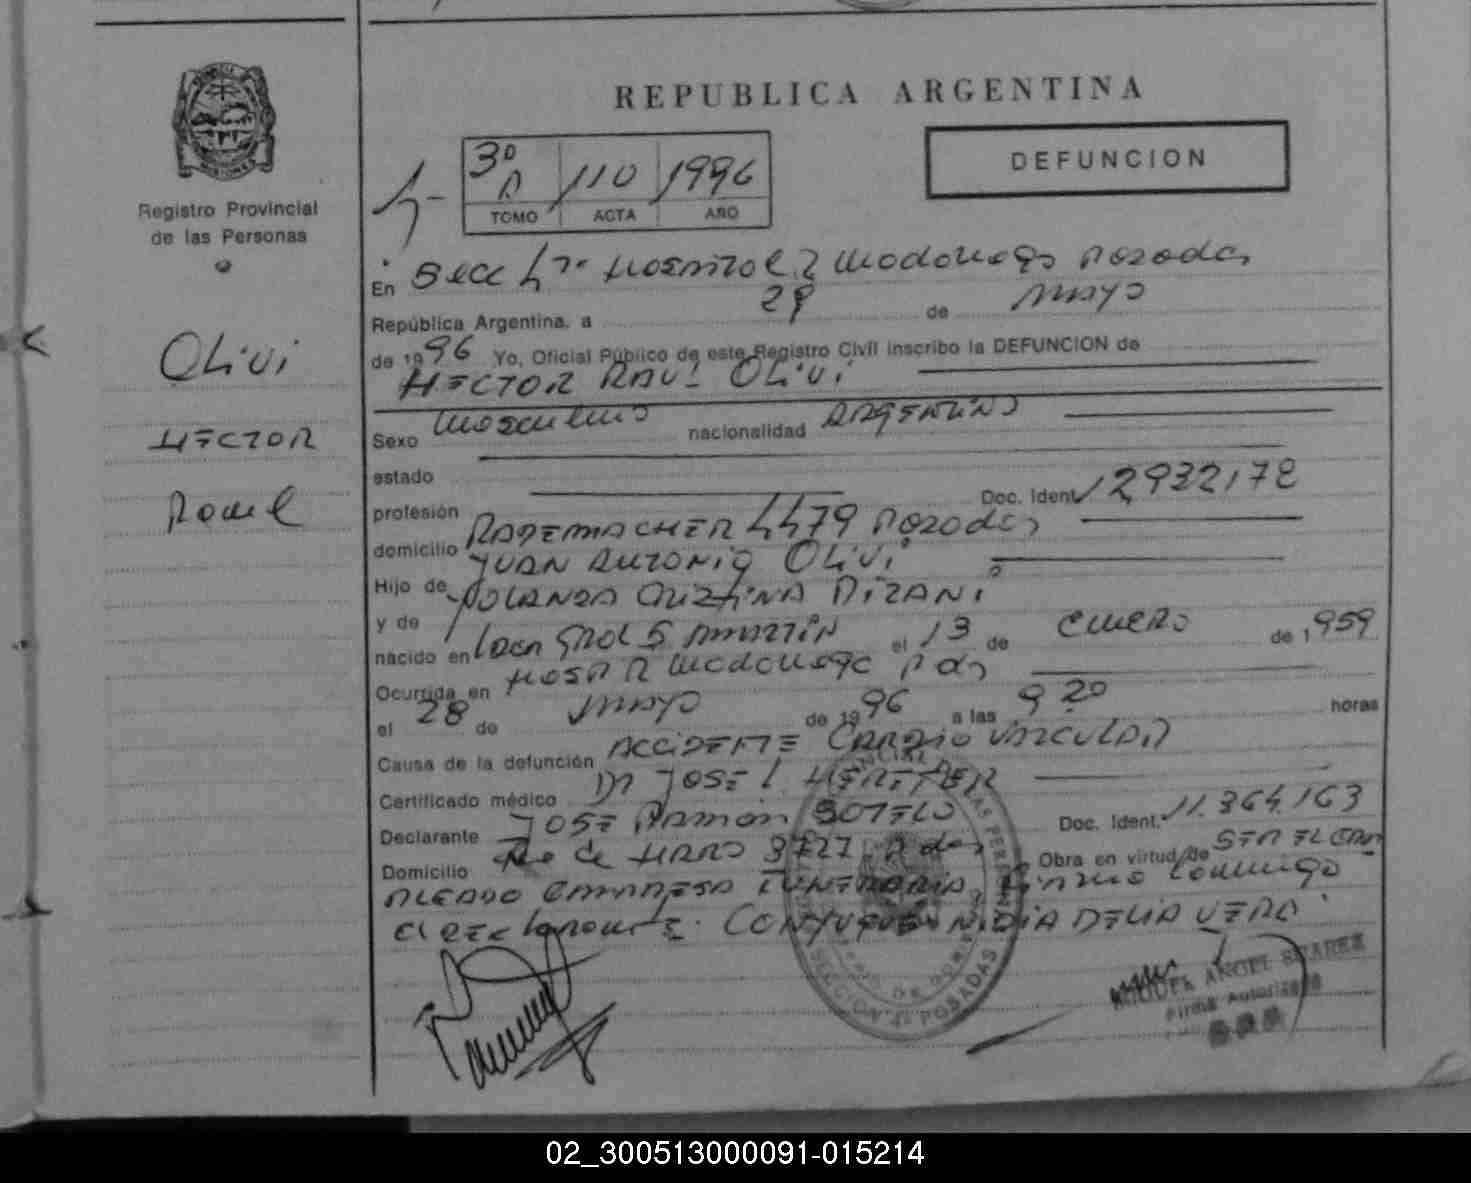 REPUBLICA ARGENTINA
DEFUNCION
3º A 110 1996
TOMO ACTA AÑO
Registro Provincial
de las Personas
OLIVI
HECTOR
RAUL
En Secc 4ta Hospital R Madariaga Posadas
República Argentina, a 29 de Mayo
de 1996 Yo, Oficial Público de este Registro Civil inscribo la DEFUNCION de
HECTOR RAUL OLIVI
Sexo Masculino nacionalidad ARGENTINO
estado
profesión Doc. Ident. 12932178
domicilio RADEMACHER 4479 Posadas
Hijo de JUAN ANTONIO OLIVI
y de YOLANDA CRISTINA PIZANI
nacido en Loc Gral S MARTIN el 13 de ENERO de 1959
Ocurrida en HOSP R Madariaga Pdas
el 28 de MAYO de 1996 a las 9 20 horas
Causa de la defunción ACCIDENTE CARDIO VASCULAR
Certificado médico Dr JOSE L
Declarante JOSE Ramon SOTELO Doc. Ident. 11.364.163
Domicilio de 3727 Pdas Obra en virtud de SER EL
PLEADO EMPRESA FUNERARIA Firmando Conmigo
El Declarante. CONYUGE: NIDIA DELIA VERA
SECCION 4ª POSADAS
MIGUEL ANGEL SUAREZ
Firma Autorizada
02_300513000091-015214